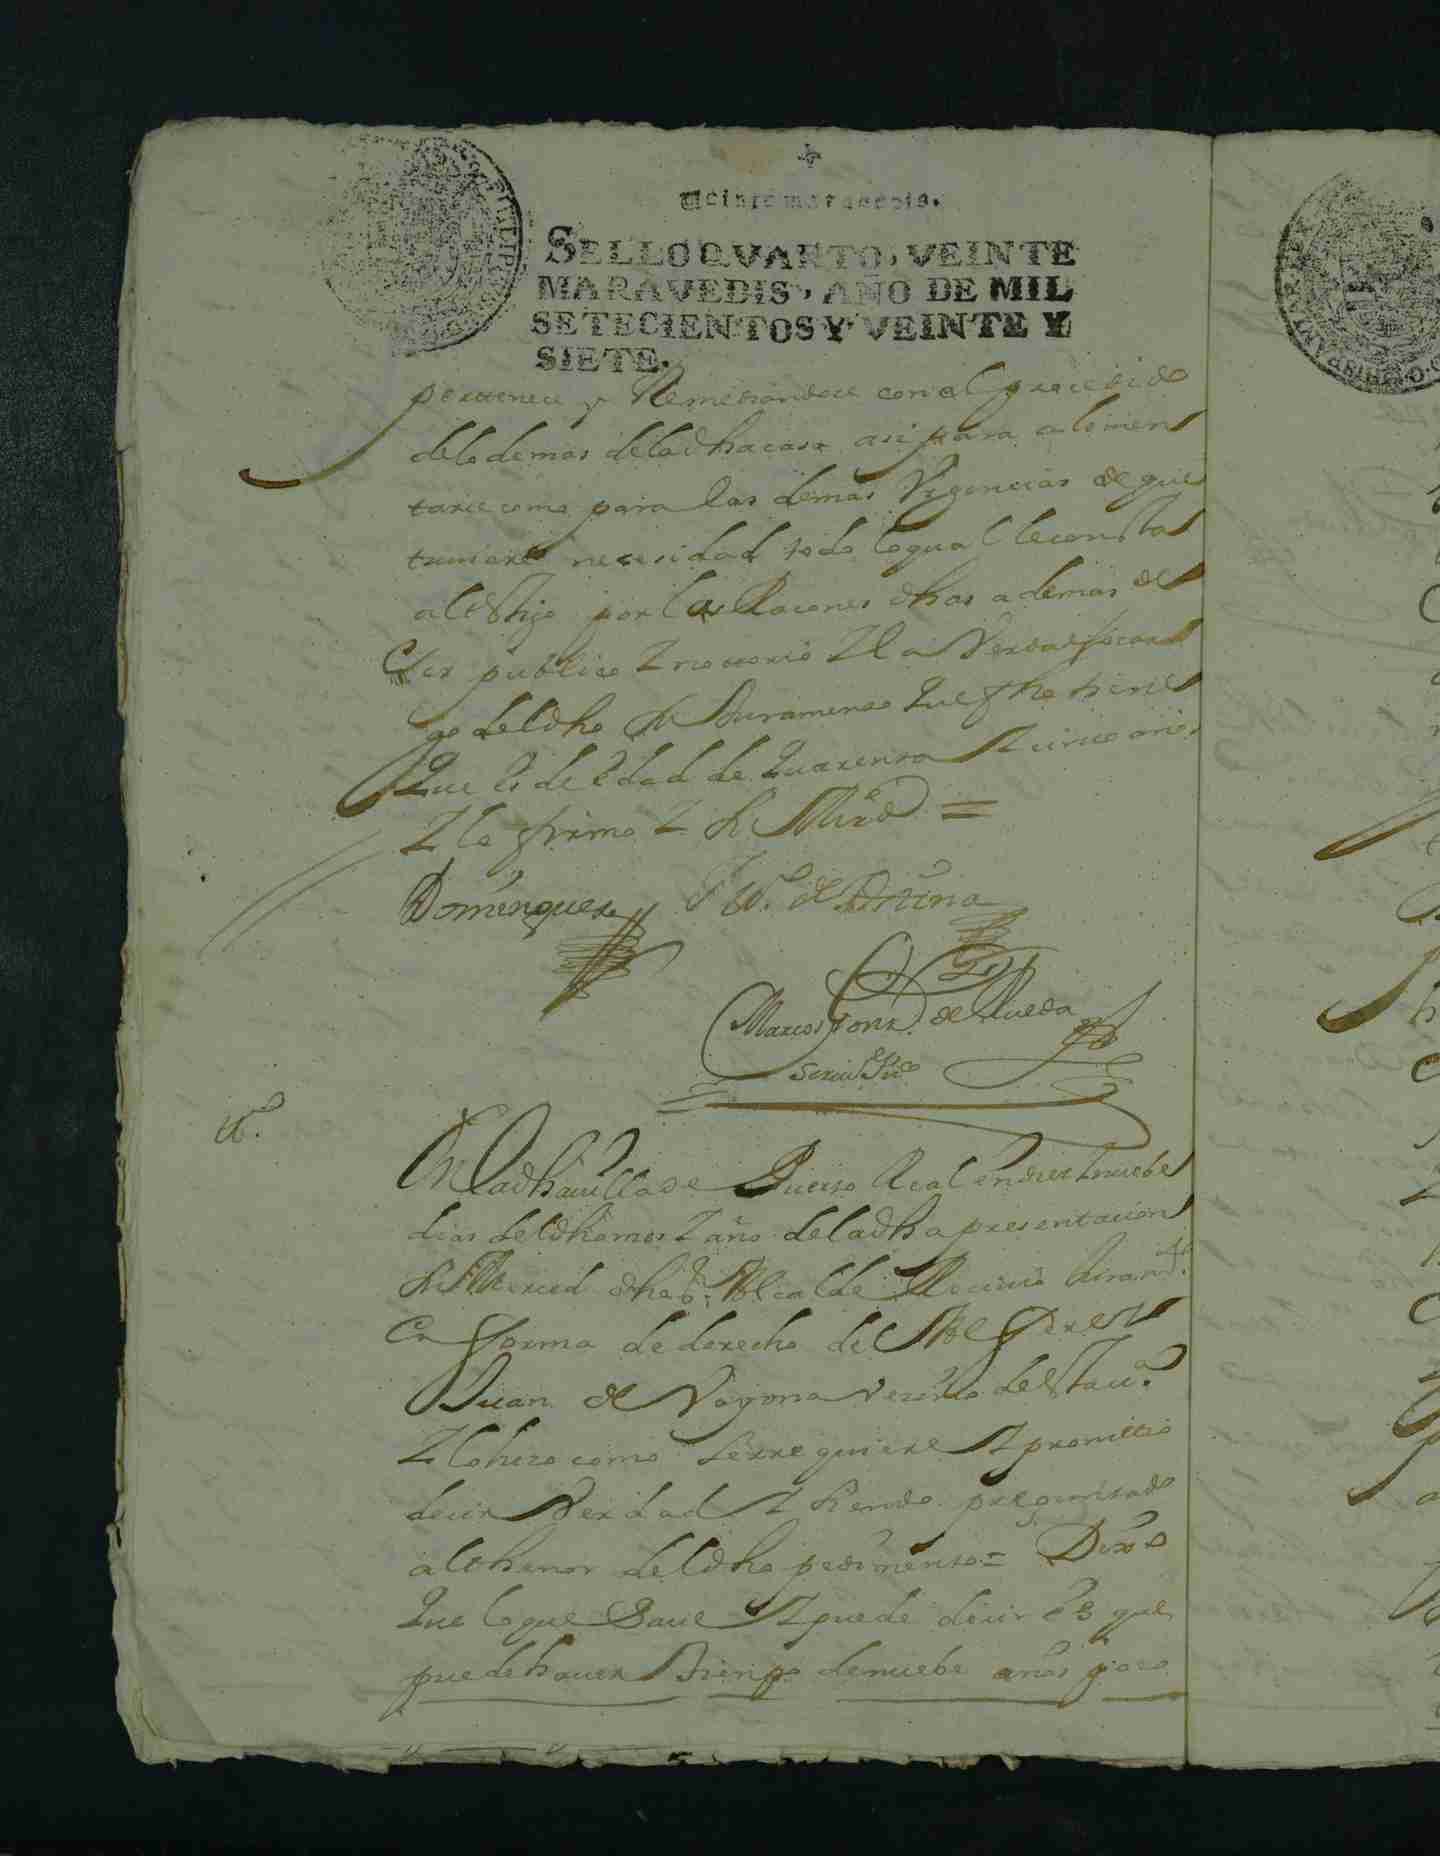 Veinte maravedis.
SELLO QVARTO, VEINTE
MARAVEDIS, AÑO DE MIL
SETECIENTOS Y VEINTE Y
SIETE.
pertenece y Remediandose con el procedido
delo demas dela dha casa asi para alimen
tarse como para las demas Vrgencias de que
tuuiere necesidad todo lo qual le consta
al testigo por las Raçones dhas ademas de
ser publico Y notorio Y la Verdad so car
go del dho su Juramento que fho tiene
Que es de edad de Quarenta Y cinco años
Y lo firmo Y su Mrd =
Dominguez
Marcos Gonz. de Rueda
Scriu Puco
to.
En la dha uilla de Puerto Real en diez Y nuebe
dias del dho mes Y año de la dha presentacion
su Merced dho sr. Alcalde Reciuio Juramto.
en forma de derecho de
Juan de Vayona vecino de esta ua.
Y lo hizo como se rrequiere Y prometio
decir Verdad Y siendo preguntado
al thenor del dho pedimento = Dixo
Que lo que Saue Y puede decir es que
puede hauer tiempo de nuebe años poco